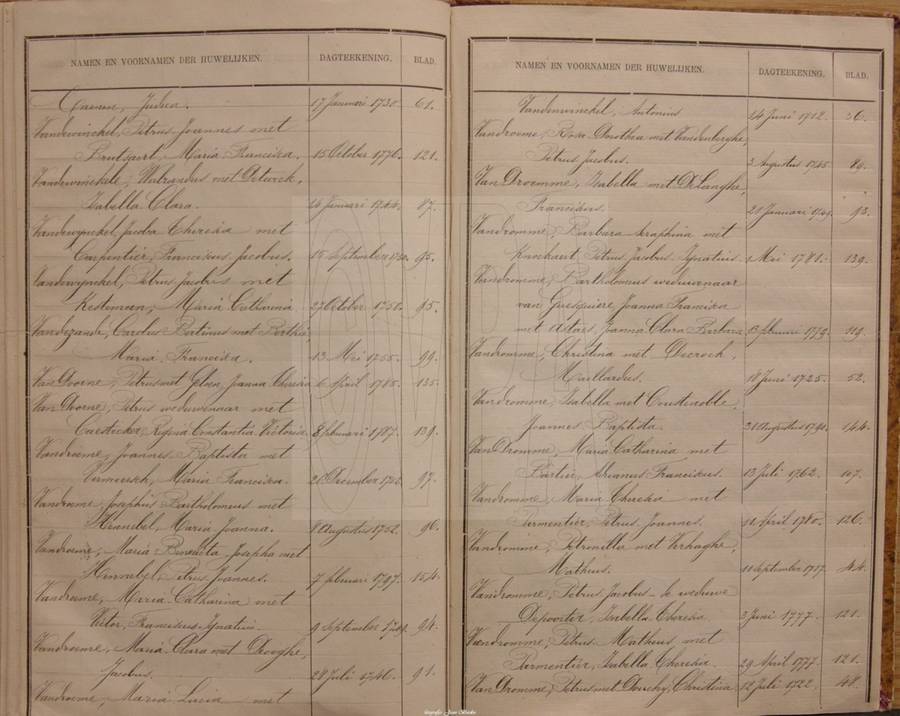 NAMEN EN VOORNAMEN DER HUWELIJKEN. DAGTEEKENING. BLAD.
Judoca. 17 Januari 1730. 61.
Vandewinckel, Petrus Joannes met
Brutsaert, Maria Francisca. 15 October 1776. 121.
Vandewinckele, Walrandus met Deturck,
Isabella Clara. Januari 1744. 87.
Vandewynckel, Jacoba Theresia met
Carpentier, Franciscus Jacobus. 15 September 95.
Vandewynckel, Petrus Jacobus met
Kesteman, Maria Catharina 27 October 1751. 95.
Carolus met
Maria Francisca. 13 Mei 1755. 99.
Van Doorne, Petrus met Joanna Theresia 6 April 1785. 135.
Van Doorne, Petrus weduwenaar met
Regina Constantia Victoria 8 februari 1787. 139.
Vandroeme, Joannes Baptista met
Vermeersch, Maria Francisca. December 97.
Vandroeme, Josephus Bartholomeus met
Maria Joanna. 8 Augustus 1752. 96.
Vandroeme, Maria Benedicta Josepha met
Petrus Joannes. 7 februari 1797. 154.
Vandroeme, Maria Catharina met
Franciscus Ignatius. 9 September 94.
Vandroeme, Maria Clara met Drooghe,
Jacobus. 28 Juli 1746. 91.
Vandroeme, Maria Lucia met
NAMEN EN VOORNAMEN DER HUWELIJKEN. DAGTEEKENING. BLAD.
Vandenwinckel, Antonius 14 Juni 1712. 36.
Vandroeme, Rosa Dorothea met Vandenberghe,
Petrus Jacobus. 3 Augustus 1745 89.
Van Droemme, Isabella met DeLanghe,
Franciskus. 21 Januari 1749. 93.
Vandromme, Barbara Seraphina met
Knockaert, Petrus Jacobus Ignatius. 1 Mei 1781. 139.
Vandromme, Bartholomeus weduwnaar
van Joanna Francisca
met Joanna Clara Barbara 13 februari 1779. 119.
Vandromme, Christina met Decrock,
Maillardus. 18 Juni 1725. 52.
Vandromme, Isabella met Coustenoble,
Joannes Baptista. 21 Augustus 1790. 144.
Van Dromme, Maria Catharina met
Adrianus Franciscus. 13 Juli 1762. 107.
Vandromme, Maria Theresia met
Parmentier, Petrus Joannes. 11 April 1780. 126.
Vandromme, Petronilla met Verhaghe,
Matheus. 11 September 1717. 44.
Vandromme, Petrus Jacobus de weduwe
Depoorter, Isabella Theresia 3 Juni 1777. 121.
Vandromme, Petrus Matheus met
Parmentier, Isabella Theresia. 29 April 1777. 121.
Van Dromme, Petrus met Douchy, Christina 12 Juli 1722. 48.